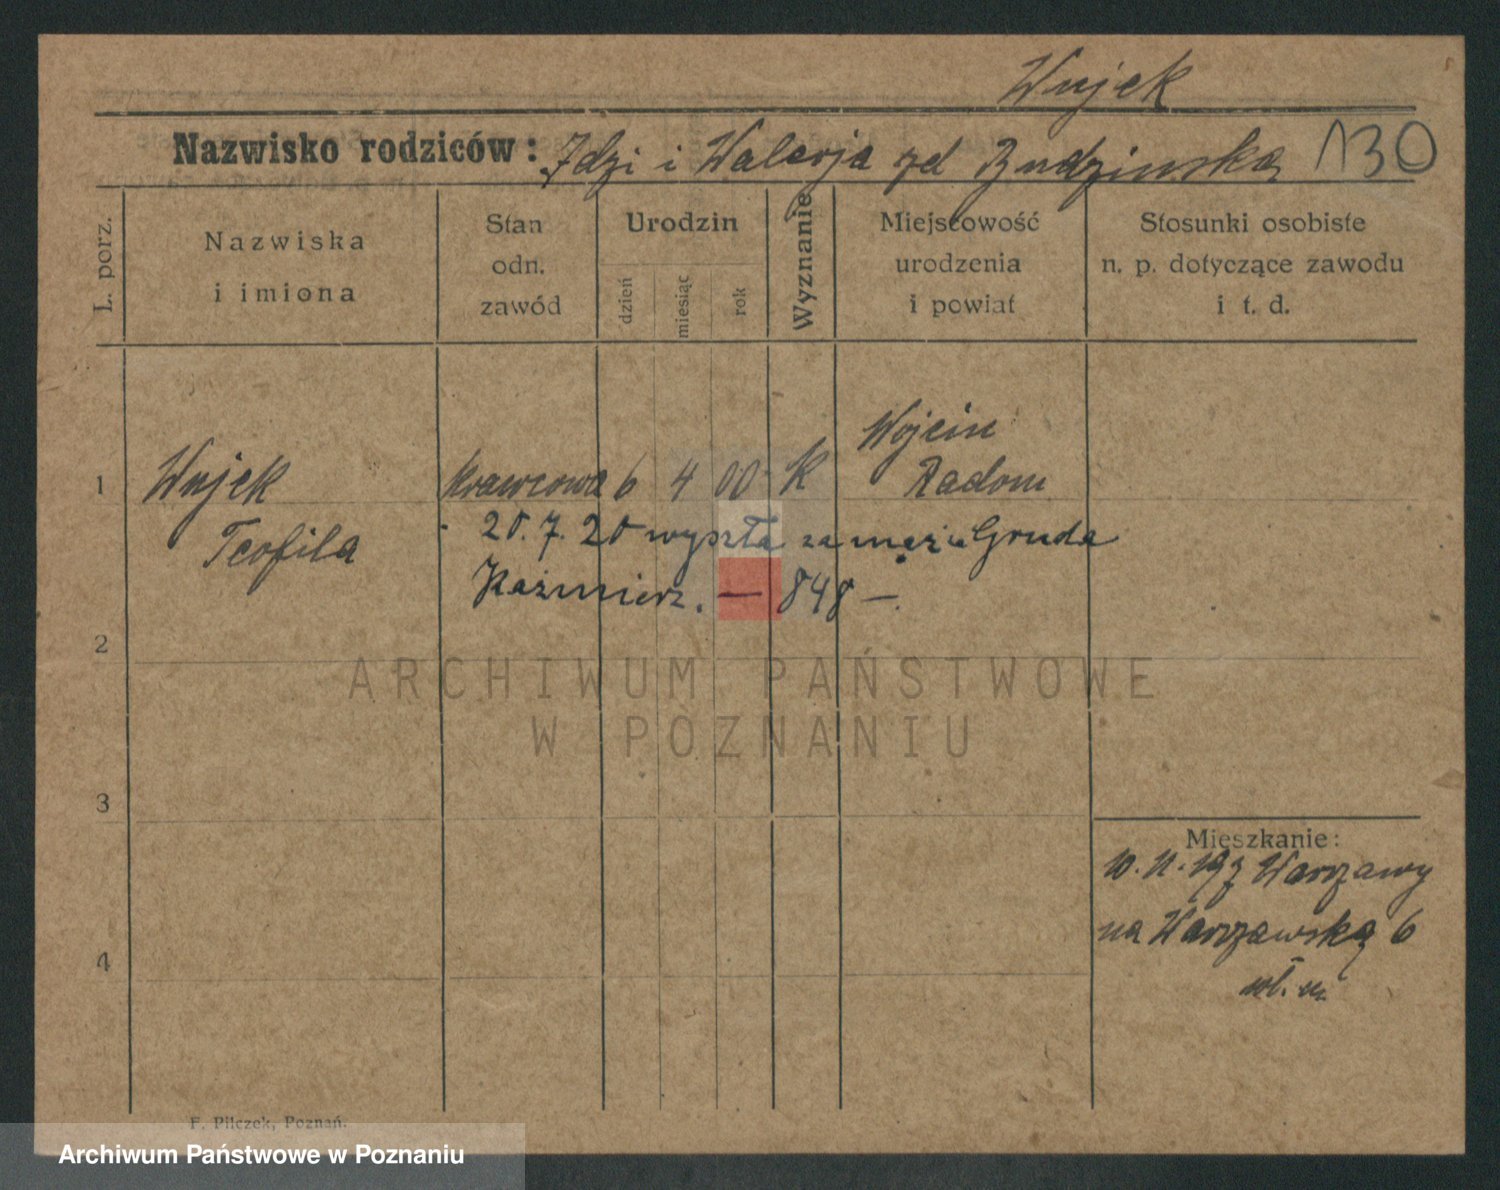 Wujek
Nazwisko rodziców: Idzi i Walerja zd Budzinska 130
L. porz.
Nazwiska
i imiona
Stan
odn.
zawód
Urodzin
dzień
miesiąc
rok
Wyznanie
Miejscowość
urodzenia
i powiat
Stosunki osobiste
n. p. dotyczące zawodu
i t. d.
Wojcin
1 Wujek Krawcowa 6 4 00 K Radom
Teofila
20. 7. 20 wyszła za mąż Gruda
Kaźmierz. — 848 —
2
ARCHIWUM PAŃSTWOWE
W POZNANIU
3
Mieszkanie:
10. 11. 19 z Warszawy
na Warszawską 6
4
F. Pilczek, Poznań.
Archiwum Państwowe w Poznaniu